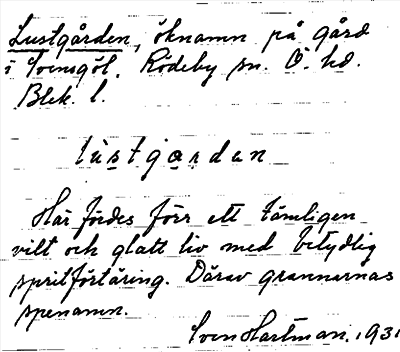 Lustgården, öknamn på gård
i Svensgöl. Rödeby sn. Ö. hd.
Blek. l.
lustgardan
Här fördes förr ett tämligen
vilt och glatt liv med betydlig
spritförtäring. Därav grannarnas
spenamn.
Sven Hartman. 1931